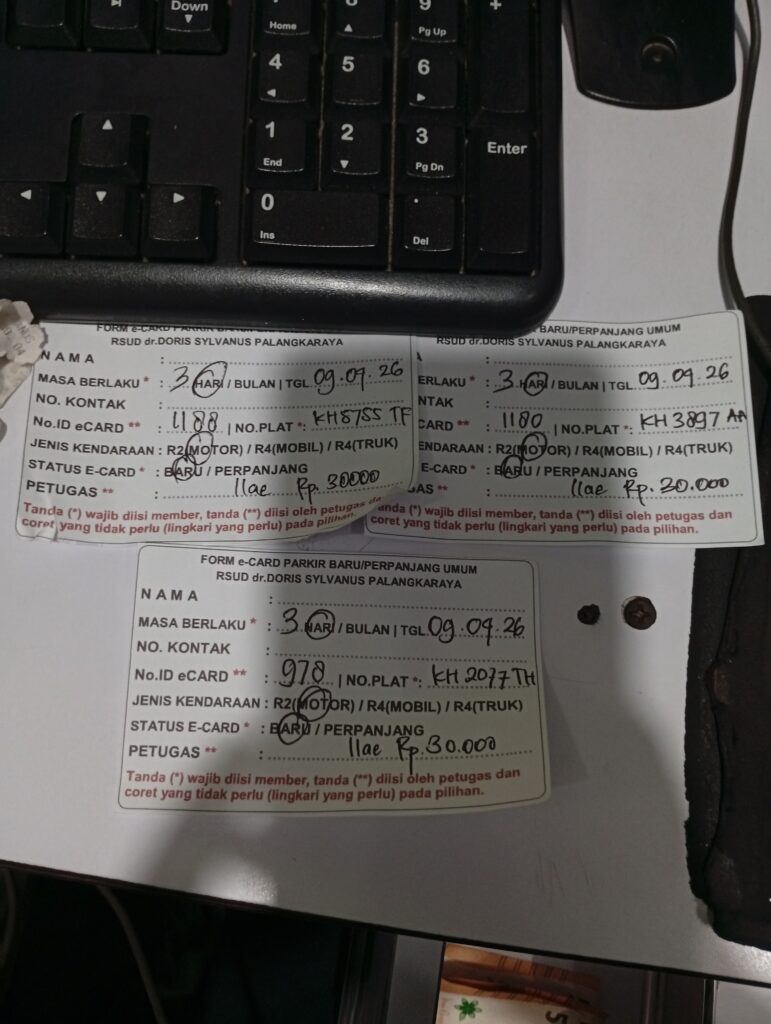 Down
Home
9
Pg Up
+
4
5
6
1
End
2
3
Pg Dn
Enter
0
Ins
.
Del
FORM e-CARD PARKIR
RSUD dr.DORIS SYLVANUS PALANGKARAYA
NAMA :
MASA BERLAKU * : 3 HARI / BULAN | TGL 09.09.26
NO. KONTAK :
No.ID eCARD ** : 1188 | NO.PLAT *: KH 8755 TF
JENIS KENDARAAN : R2(MOTOR) / R4(MOBIL) / R4(TRUK)
STATUS E-CARD * : BARU / PERPANJANG
PETUGAS ** : Ilae Rp. 30000
Tanda (*) wajib diisi member, tanda (**) diisi oleh petugas da
coret yang tidak perlu (lingkari yang perlu) pada pilihan.
BARU/PERPANJANG UMUM
RSUD dr.DORIS SYLVANUS PALANGKARAYA
A :
ERLAKU * : 3 HARI / BULAN | TGL 09.09.26
NTAK :
CARD ** : 1180 | NO.PLAT *: KH 3897 AA
ENDARAAN : R2(MOTOR) / R4(MOBIL) / R4(TRUK)
E-CARD * : BARU / PERPANJANG
GAS ** : Ilae Rp. 30.000
anda (*) wajib diisi member, tanda (**) diisi oleh petugas dan
coret yang tidak perlu (lingkari yang perlu) pada pilihan.
FORM e-CARD PARKIR BARU/PERPANJANG UMUM
RSUD dr.DORIS SYLVANUS PALANGKARAYA
NAMA :
MASA BERLAKU * : 3 HARI / BULAN | TGL 09.09.26
NO. KONTAK :
No.ID eCARD ** : 978 | NO.PLAT *: KH 2077 TH
JENIS KENDARAAN : R2(MOTOR) / R4(MOBIL) / R4(TRUK)
STATUS E-CARD * : BARU / PERPANJANG
PETUGAS ** : Ilae Rp.30.000
Tanda (*) wajib diisi member, tanda (**) diisi oleh petugas dan
coret yang tidak perlu (lingkari yang perlu) pada pilihan.